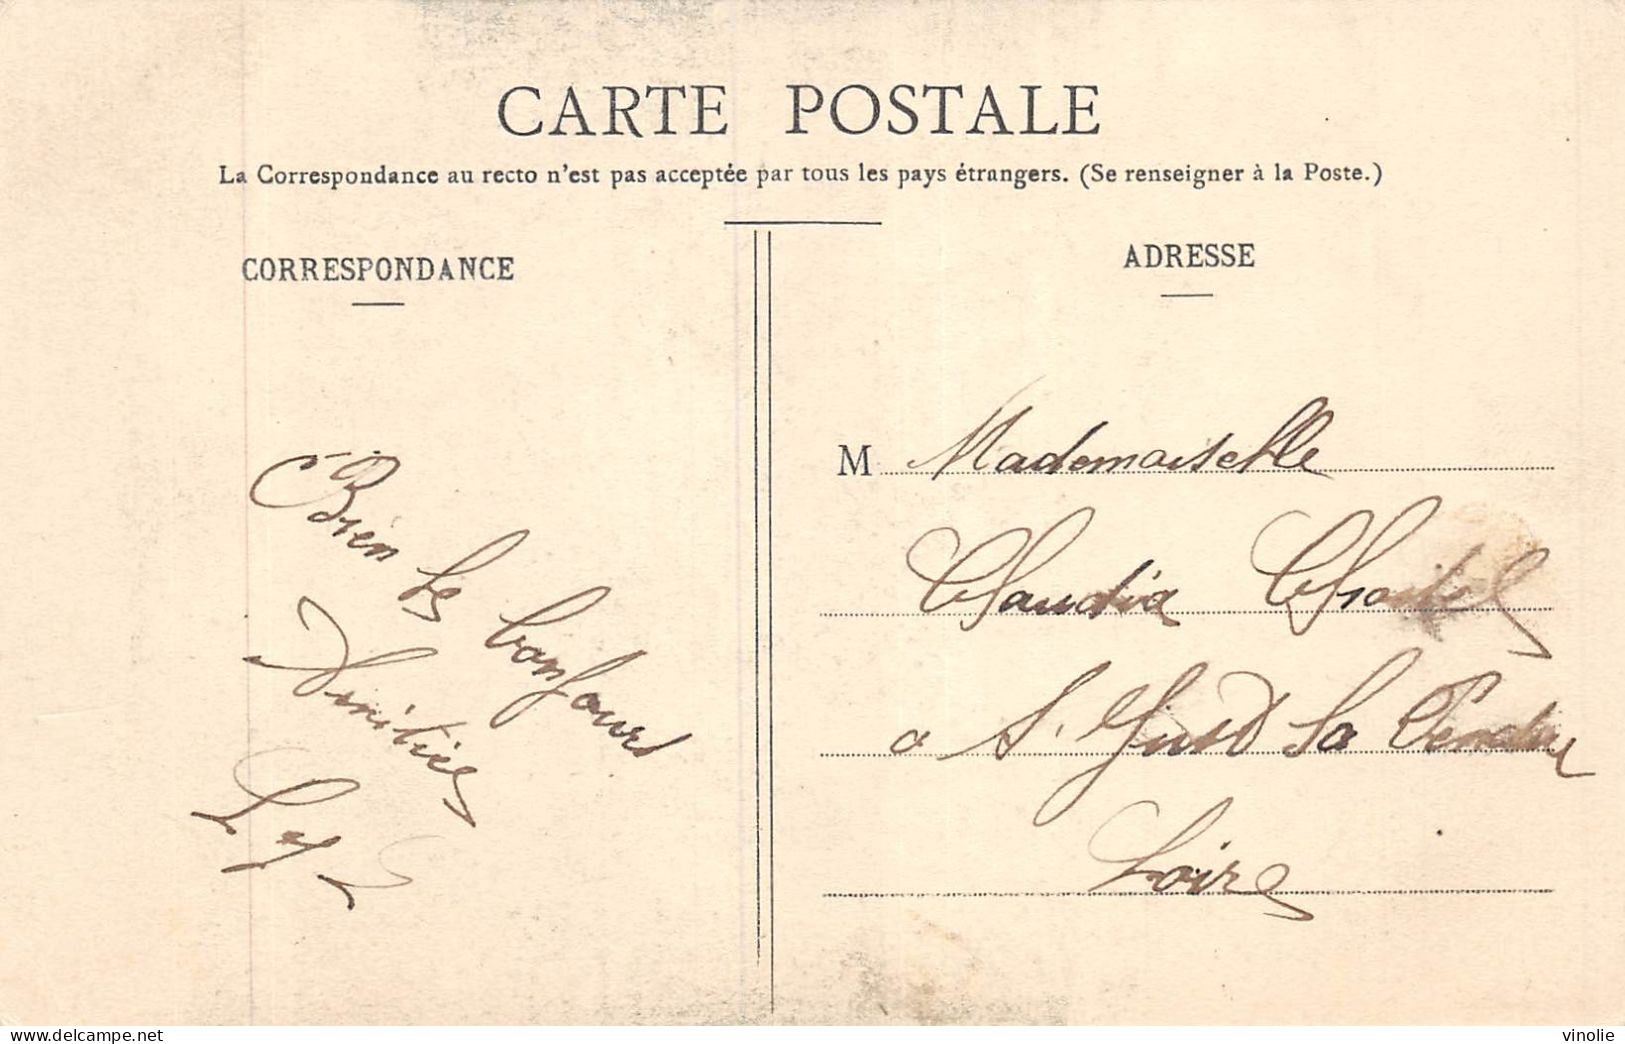 CARTE POSTALE
La Correspondance au recto n'est pas acceptée par tous les pays étrangers. (Se renseigner à la Poste.)
CORRESPONDANCE
Bien les bonjours
Amitiés
ADRESSE
M Mademoiselle
Claudia
a St Just la Pendue
Loire
www.delcampe.net
vinolie